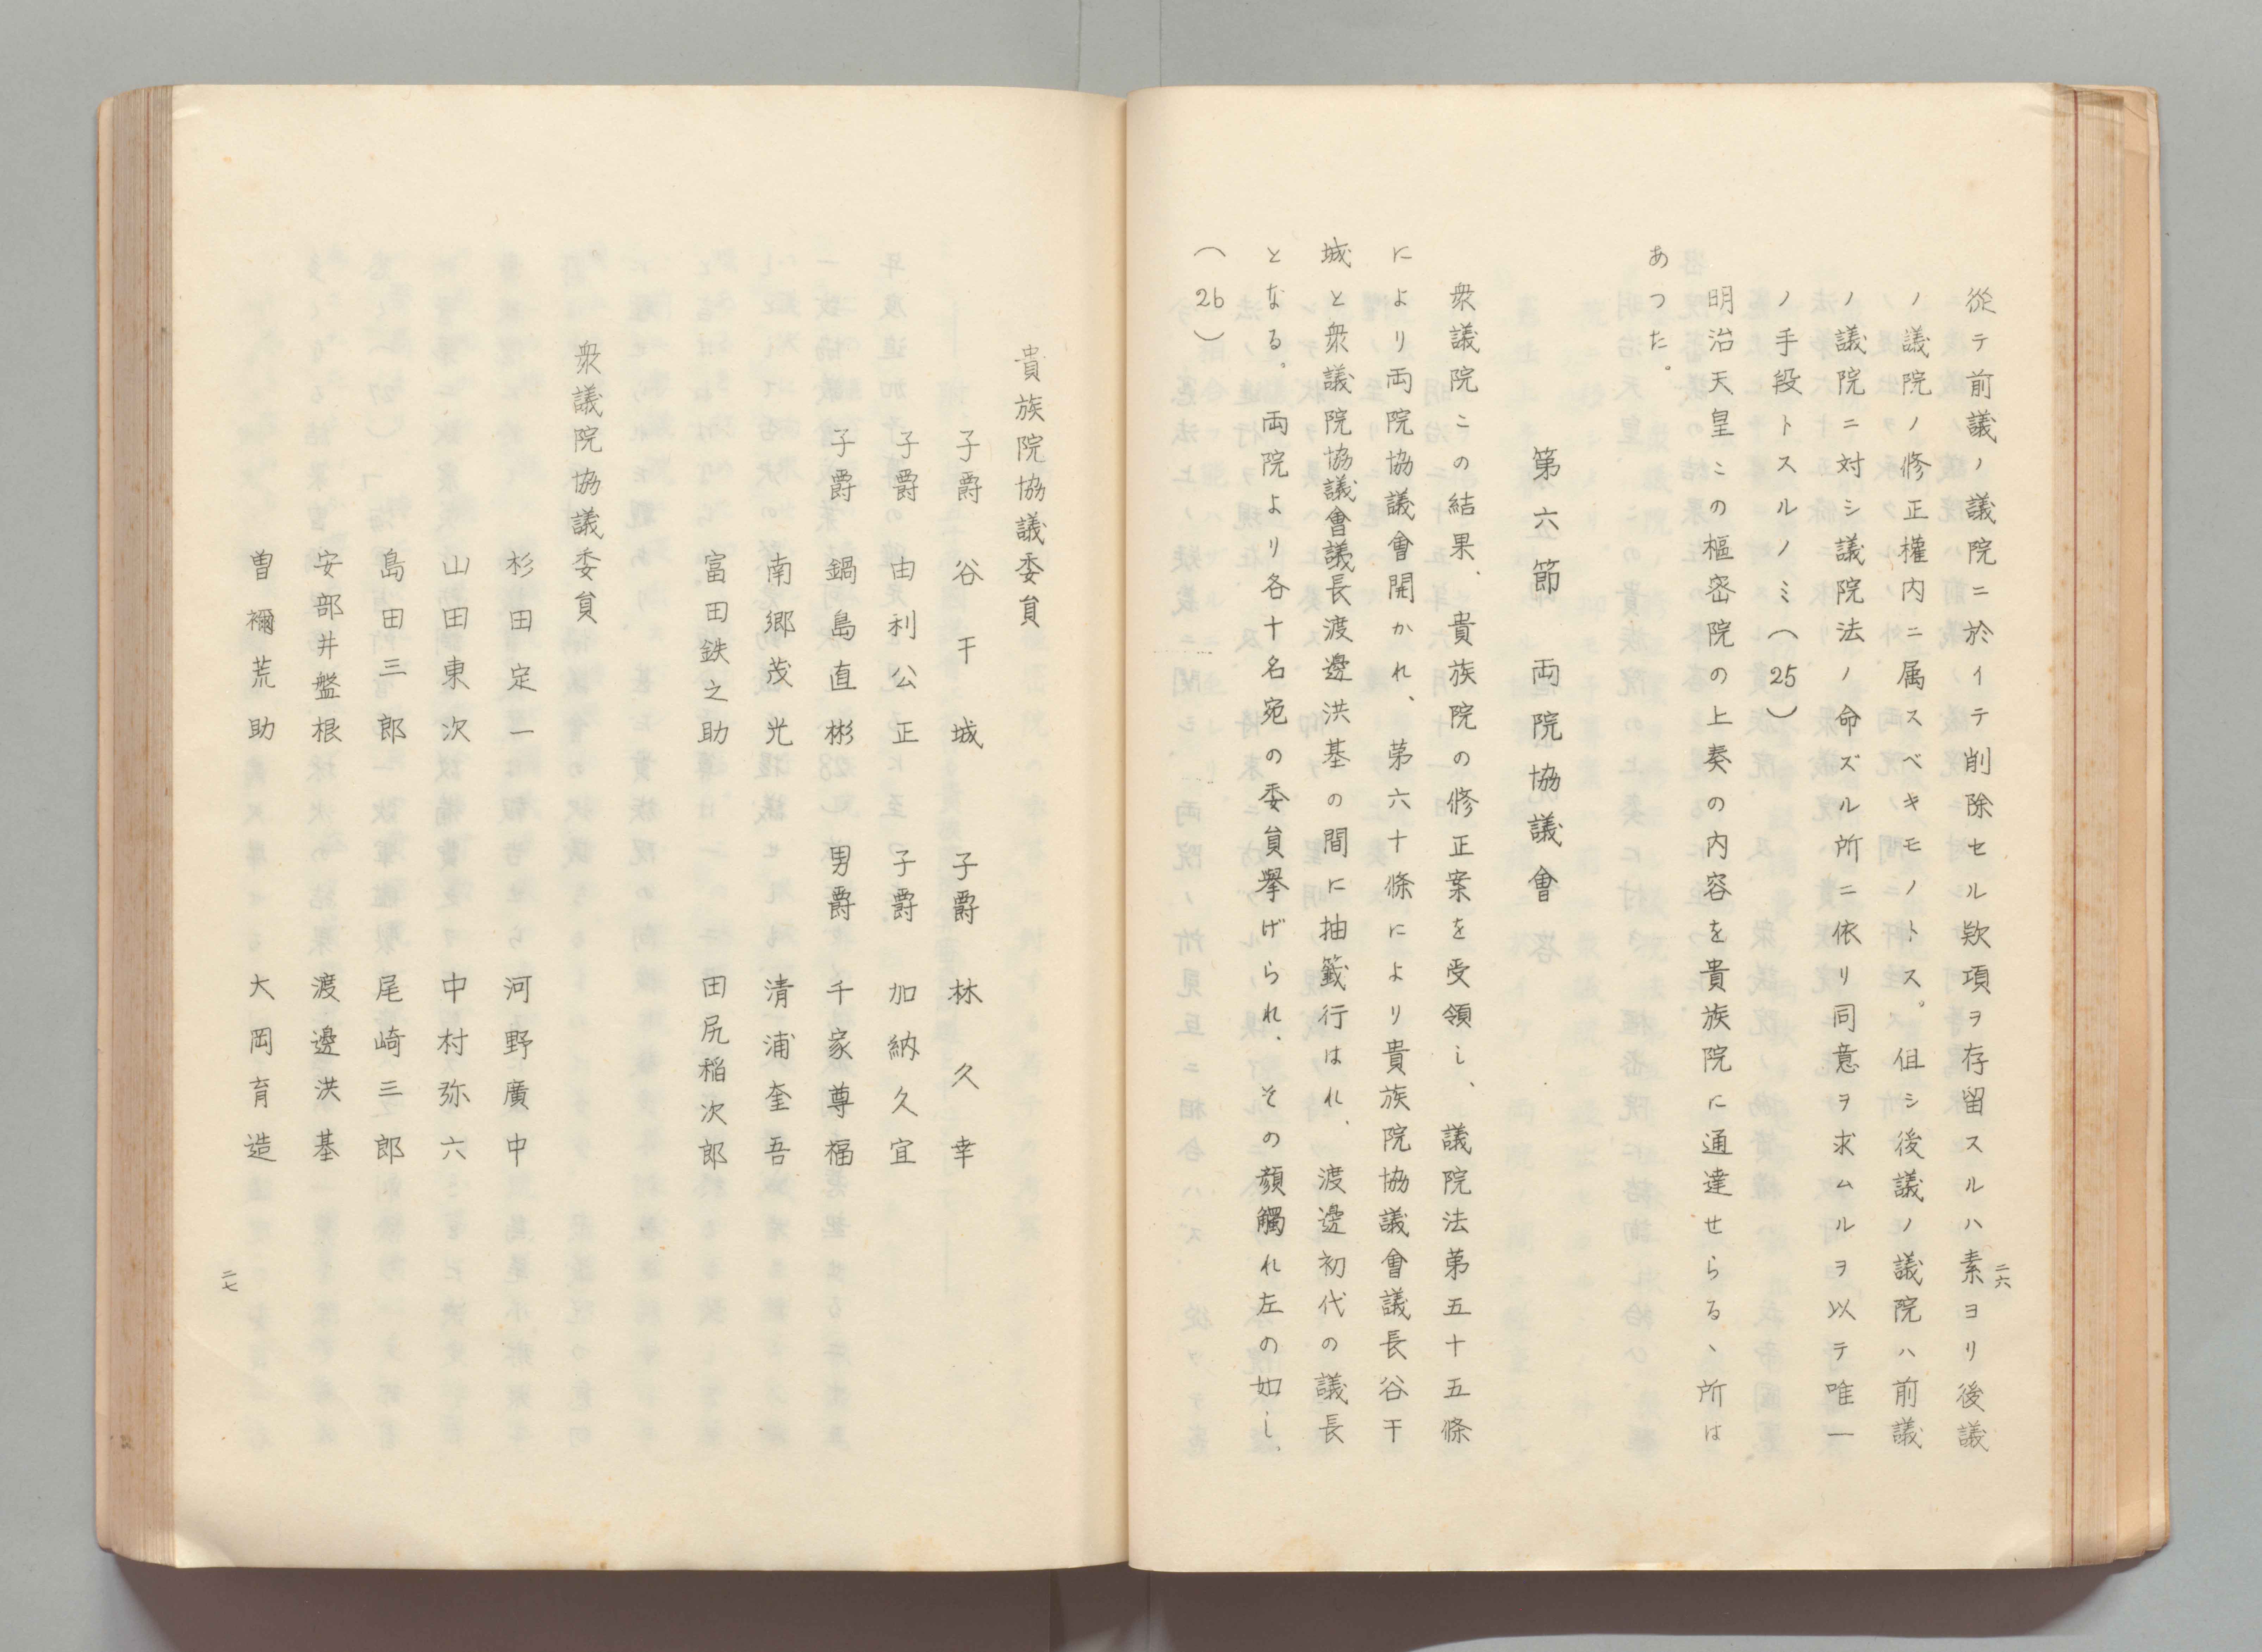 二六
従テ前議ノ議院ニ於イテ削除セル欵項ヲ存留スルハ素ヨリ後議
ノ議院ノ修正權内ニ属スベキモノトス。但シ後議ノ議院ハ前議
ノ議院ニ対シ議院法ノ命ズル所ニ依リ同意ヲ求ムルヲ以テ唯一
ノ手段トスルノミ(25)
明治天皇この樞密院の上奏の内容を貴族院に通達せらるゝ所は
あつた。
第六節 両院協議會
衆議院この結果、貴族院の修正案を受領し、議院法第五十五條
により両院協議會開かれ、第六十條により貴族院協議會議長谷干
城と衆議院協議會議長渡邊洪基の間に抽籤行はれ、渡邊初代の議長
となる。両院より各十名宛の委員擧げられ、その顔觸れ左の如し、
(26)
貴族院協議委員
子爵 谷干城 子爵 林久幸
子爵 由利公正 子爵 加納久宜
子爵 鍋島直彬 男爵 千家尊福
南郷茂光 清浦奎吾
富田鉄之助 田尻稲次郎
衆議院協議委員
杉田定一 河野廣中
山田東次 中村弥六
島田三郎 尾崎三郎
安部井盤根 渡邊洪基
曽禰荒助 大岡育造
二七